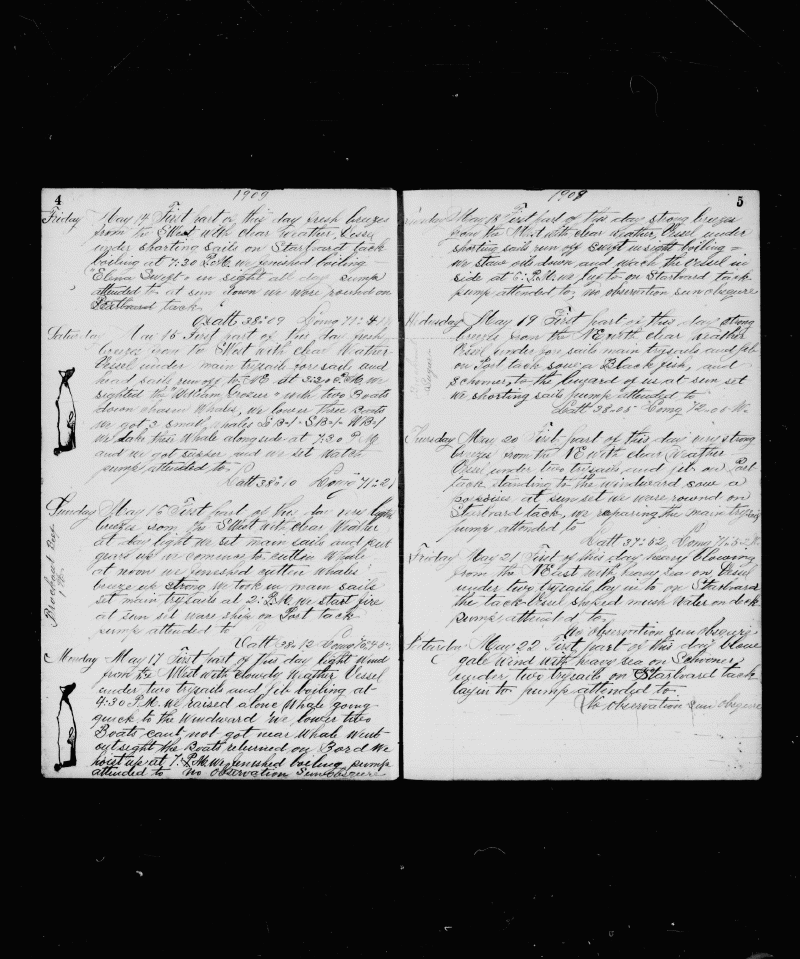 4
1909
Friday May 14 First part of this day fresh breezes
from the SWest with clear weather, Vessel
under shorting sails on Starboard tack
boiling at 7:30 P.M. we finished boiling
"Elena Swift" in sight all day pump
attended to at sun down we were round on
Starboard tack
Latt 38:09 Long 71:4
Saturday May 15 First part of this day fresh
breezes from the West with clear Weather
Vessel under main trysail fore sails and
head sails run off to NE at 3:30 P.M. we
sighted the "William Grosier" with two Boats
down chasen Whales, we lower three Boats
we got 3 small whales
we take this Whale alongside at 7:30 P.M.
and we got supper and we set Watch
pump attended to
Latt 38:10 Long 71:21
Sunday May 16 First part of this day very light
breezes from the SWest with clear Weather
at day light we set main sails and put
gear up an comence to cutten Whale
at noon we fineshed cutten whales
breeze up strong we took in main sails
set main trysails at 2: P.M. we start fire
at sun set wore ship on Port tack
pump attended to
Latt 38:12 Long
Monday May 17 First part of this day light wind
from the West with clowdy Weather Vessel
under two trysails and jib boiling at
4:30 P.M. we raised alone Whale going
quick to the Windward we lower two
Boats cant not got near Whale went
out sight the Boats returned on Bord we
hoist up at 7: P.M. we fineshed boiling pump
attended to no observation Sun obsquere
5
1909
May 18 First part of this day strong breezes
from the West with clear weather, Vessel under
shorting sails run off Swift in sight boiling
we stave oil down and wash the Vessel in
side at 6: P.M. we lay to on Starboard tack
pump attended to, no observation sun obsquere
Wednesday May 19 First part of this day strong
breezes from the NE with clear weather
Vessel under fore sails main trysails and jib
on Port tack saw a Black fish, and
schooner, to the luyard of us at sun set
we shorting sails pump attended to
Latt 38-05 Long 72-00 W.
Thursday May 20 First part of this day very strong
breezes from the NE with clear Weather
Vessel under two trysails and jib on Port
tack standing to the windward saw a
porpoises at sun set we were round on
Starboard tack, we reparing the main trysails
pump attended to
Latt 37:52 Long 71:52 W.
Friday May 21 First of this day heavy blowing
from the NEast with heavy sea on Vessel
under two trysails lay in to on Starboard
the tack Vessel shiped much Water on deck
pump attended to,
No observation sun obsquere
Saturday May 22 First part of this day blowe
gale wind with heavy sea on Schooner
under two trysails on Starboard tack
layin to pump attended to
No observation Sun obsquere